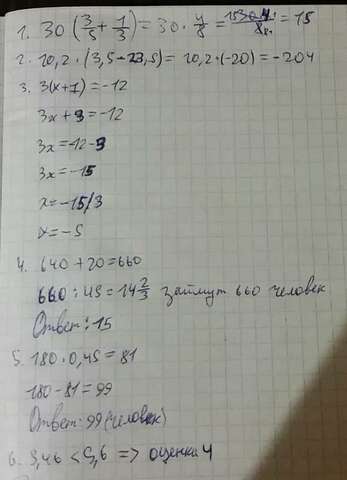 1. 30 (3/5 + 1/3) = 30 · 4/8 = 15 30·4 / 8 = 15
2. 10,2 · (3,5 - 23,5) = 10,2 · (-20) = -204
3. 3(x+1) = -12
3x + 3 = -12
3x = -12 - 3
3x = -15
x = -15/3
x = -5
4. 640 + 20 = 660
660 : 45 = 14 2/3 займут 660 человек
Ответ: 15
5. 180 · 0,45 = 81
180 - 81 = 99
Ответ: 99 (человек)
6. 3,46 < 5,6 => оценка 4